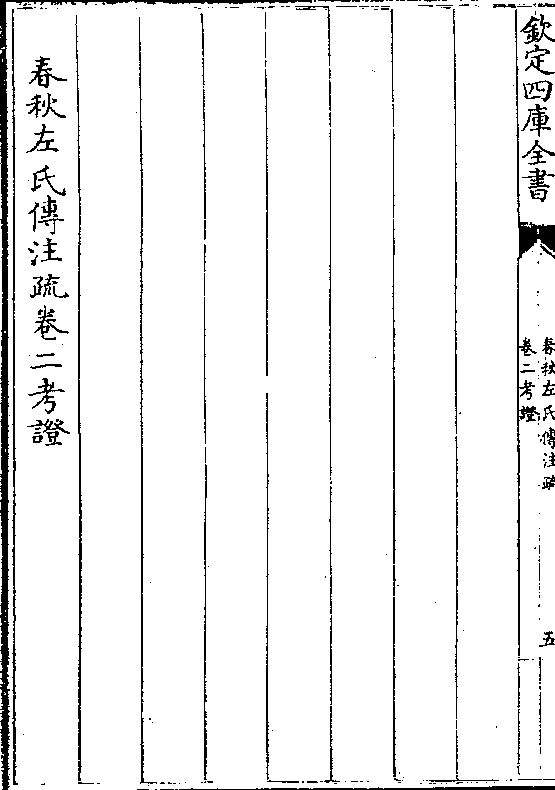 欽定四庫全書
春秋左氏傳注疏
卷二考證
五
春秋左氏傳注疏卷二考證